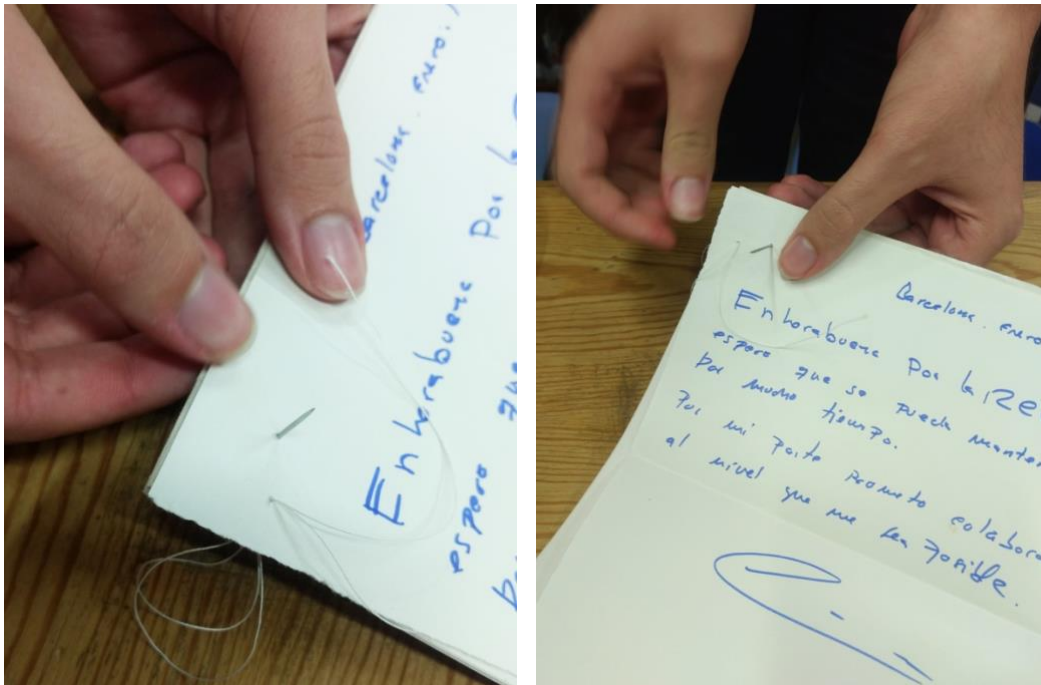 Barcelona. Enero.
Enhorabuena Por la
espero que
Barcelona. Enero
Enhorabuena Por la RE
espero que se pueda manten
por mucho tiempo.
Por mi parte Prometo colabora
al nivel que me sea Posible.